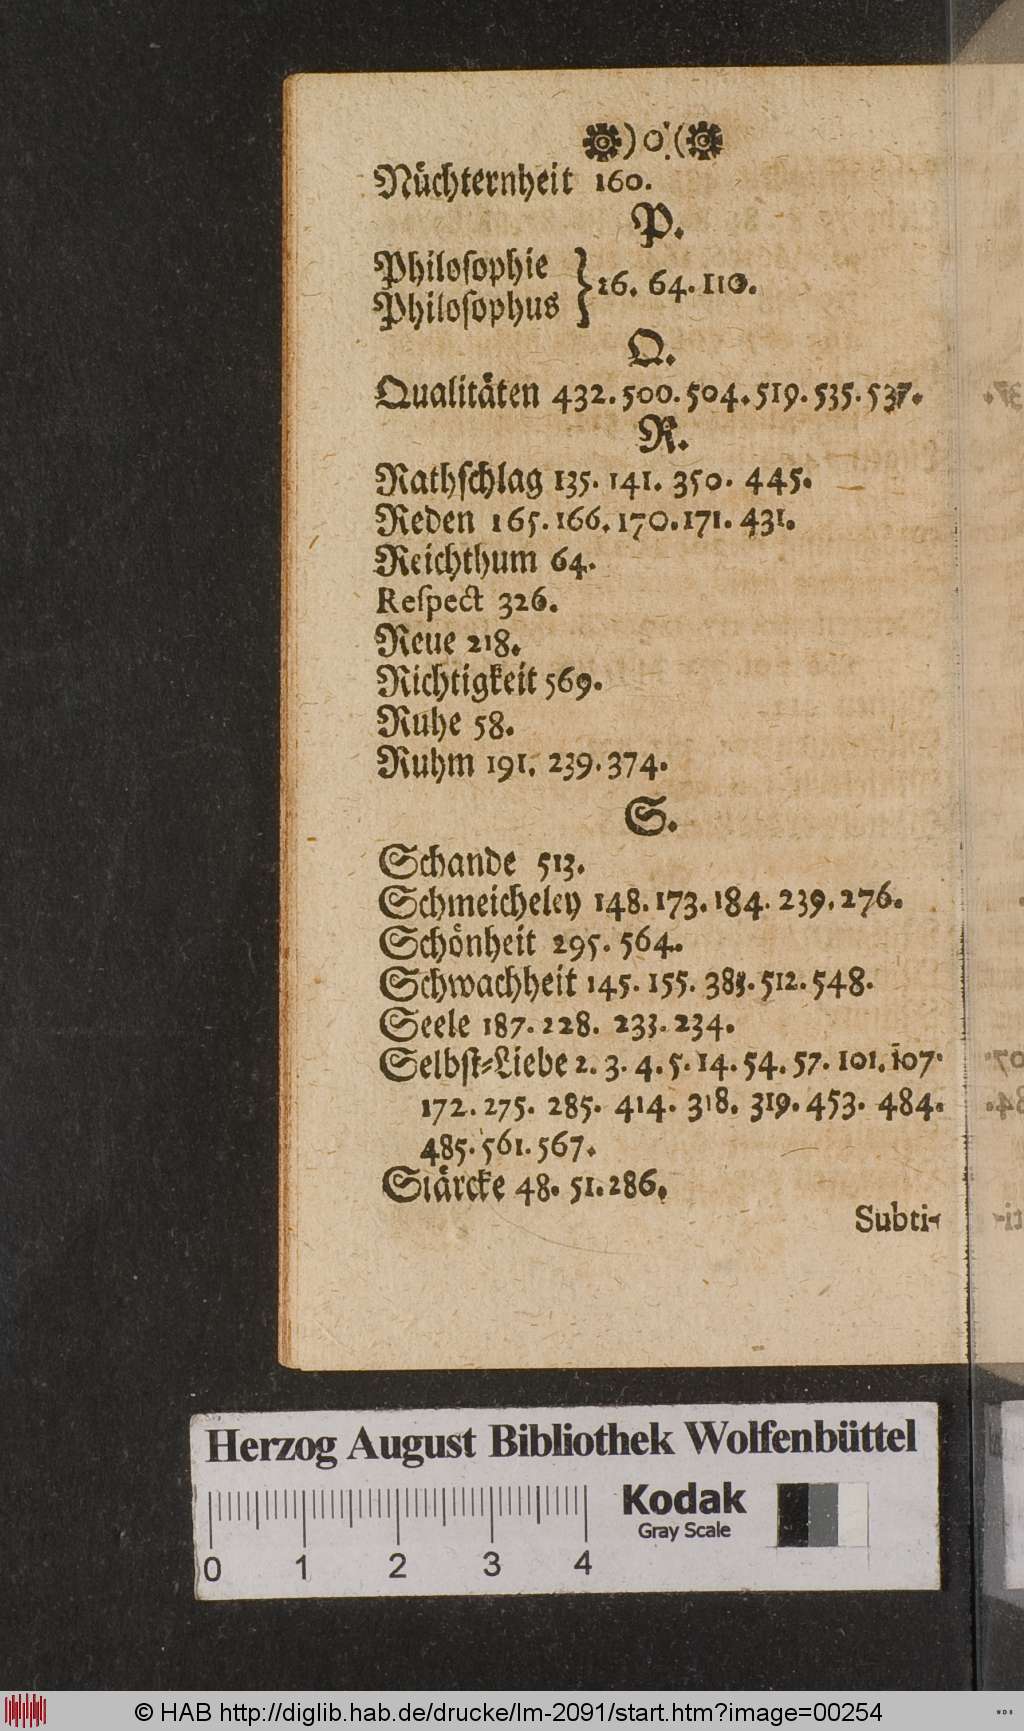 )o(
Nüchternheit 160.
P.
Philoſophie
Philoſophus } 26. 64. 110.
Q.
Qualitäten 432. 500. 504. 519. 535. 537.
R.
Rathſchlag 135. 141. 350. 445.
Reden 165. 166. 170. 171. 431.
Reichthum 64.
Reſpect 326.
Reue 218.
Richtigkeit 569.
Ruhe 58.
Ruhm 191. 239. 374.
S.
Schande 513.
Schmeicheley 148. 173. 184. 239. 276.
Schönheit 295. 564.
Schwachheit 145. 155. 383. 512. 548.
Seele 187. 228. 233. 234.
Selbſt-Liebe 2. 3. 4. 5. 14. 54. 57. 101. 107.
172. 275. 285. 414. 318. 319. 453. 484.
485. 561. 567.
Stärcke 48. 51. 286.
Subti-
Herzog August Bibliothek Wolfenbüttel
Kodak
Gray Scale
0 1 2 3 4
© HAB http://diglib.hab.de/drucke/lm-2091/start.htm?image=00254